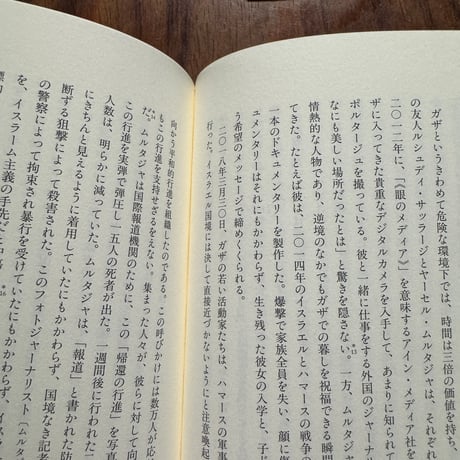 ガザというきわめて危険な環境下では、時間は三倍の価値を持ち、
の友人ルシュディ・サッラージとヤーセル・ムルタジャは、それぞれ
二〇一二年に、《眼のメディア》を意味するアイン・メディア社を
ザに入ってきた貴重なデジタルカメラを入手して、あまりに知られ
ポルタージュを撮っている。彼と一緒に仕事をする外国のジャーナ
なにも美しい場所だったとは」と驚きを隠さない。一方、ムルタジャ
情熱的な人物であり、逆境のなかでもガザでの暮しを祝福できる瞬間
てきた。たとえば彼は、二〇一四年のイスラエルとハマースの戦争の
一本のドキュメンタリーを製作した。爆撃で家族全員を失い、顔に傷
ュメンタリーはそれにもかかわらず、生き残った彼女の入学と、子
う希望のメッセージで締めくくられる。
二〇一八年三月三〇日、ガザの若い活動家たちは、ハマースの軍事
行った。イスラエル国境には決して直接近づかないようにと注意喚起
向かう平和的行進を組織したのである。この呼びかけには数万人が応
もこの行進を支持せざるをえない。集まった人々が、彼らに対して向
ムルタジャは国際報道機関のために、この「帰還の行進」を写真
この行進を実弾で弾圧し一五人の死者が出た。一週間後に行われた
人数は、明らかに減っていた。ムルタジャは、「報道」と書かれた防
にきちんと見えるように着用していたにもかかわらず、
断ずる狙撃によって殺害された。このフォトジャーナリスト〔ムルタ
の警察によって拘束され暴行を受けていたにもかかわらず、イス
を、イスラーム主義の手先だと